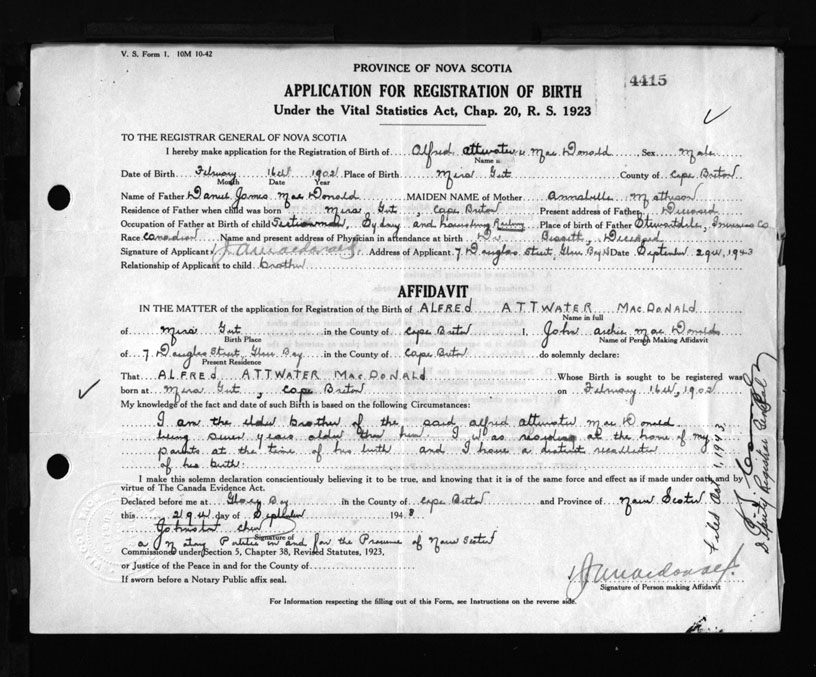 V. S. Form 1. 10M 10-42
PROVINCE OF NOVA SCOTIA
4415
APPLICATION FOR REGISTRATION OF BIRTH
Under the Vital Statistics Act, Chap. 20, R. S. 1923
TO THE REGISTRAR GENERAL OF NOVA SCOTIA
I hereby make application for the Registration of Birth of Alfred Attwater Mac Donald Sex Male
Name in
Date of Birth February 16th 1902 Place of Birth Mira Gut County of Cape Breton
Month Date Year
Name of Father Daniel James Mac Donald MAIDEN NAME of Mother Annabelle Matheson
Residence of Father when child was born Mira Gut, Cape Breton Present address of Father Deceased
Occupation of Father at Birth of child Sectionman, Sydney and Louisburg Railway Place of Birth of Father Inverness Co.
Race Canadian Name and present address of Physician in attendance at birth Dr. Bissett, Deceased
Signature of Applicant J. A. Macdonald Address of Applicant 7, Douglas Street, Glace Bay N Date September 29th, 1943
Relationship of Applicant to child brother
AFFIDAVIT
IN THE MATTER of the application for Registration of the Birth of ALFRED ATTWATER MACDONALD
Name in full
of Mira Gut in the County of Cape Breton I, John Archie Mac Donald
Birth Place Name of Person Making Affidavit
of 7, Douglas Street, Glace Bay in the County of Cape Breton do solemnly declare:
Present Residence
That ALFRED ATTWATER MACDONALD Whose Birth is sought to be registered was
born at Mira Gut, Cape Breton on February 16th, 1902
My knowledge of the fact and date of such Birth is based on the following Circumstances:
I am the elder brother of the said alfred attwater Mac Donald
being seven years older than him. I was residing at the home of my
parents at the time of his birth and I have a distinct recollection
of his birth.
I make this solemn declaration conscientiously believing it to be true, and knowing that it is of the same force and effect as if made under oath and by
virtue of The Canada Evidence Act.
Declared before me at Glace Bay in the County of Cape Breton and Province of Nova Scotia
this 29th day of September 1943
Signature of
a Notary Public in and for the Province of Nova Scotia
Commissioned under Section 5, Chapter 38, Revised Statutes, 1923,
or Justice of the Peace in and for the County of
If sworn before a Notary Public affix seal.
J. A. Macdonald.
Signature of Person making Affidavit
For Information respecting the filling out of this Form, see Instructions on the reverse side.
Filed Oct 1, 1943,
Deputy Registrar General